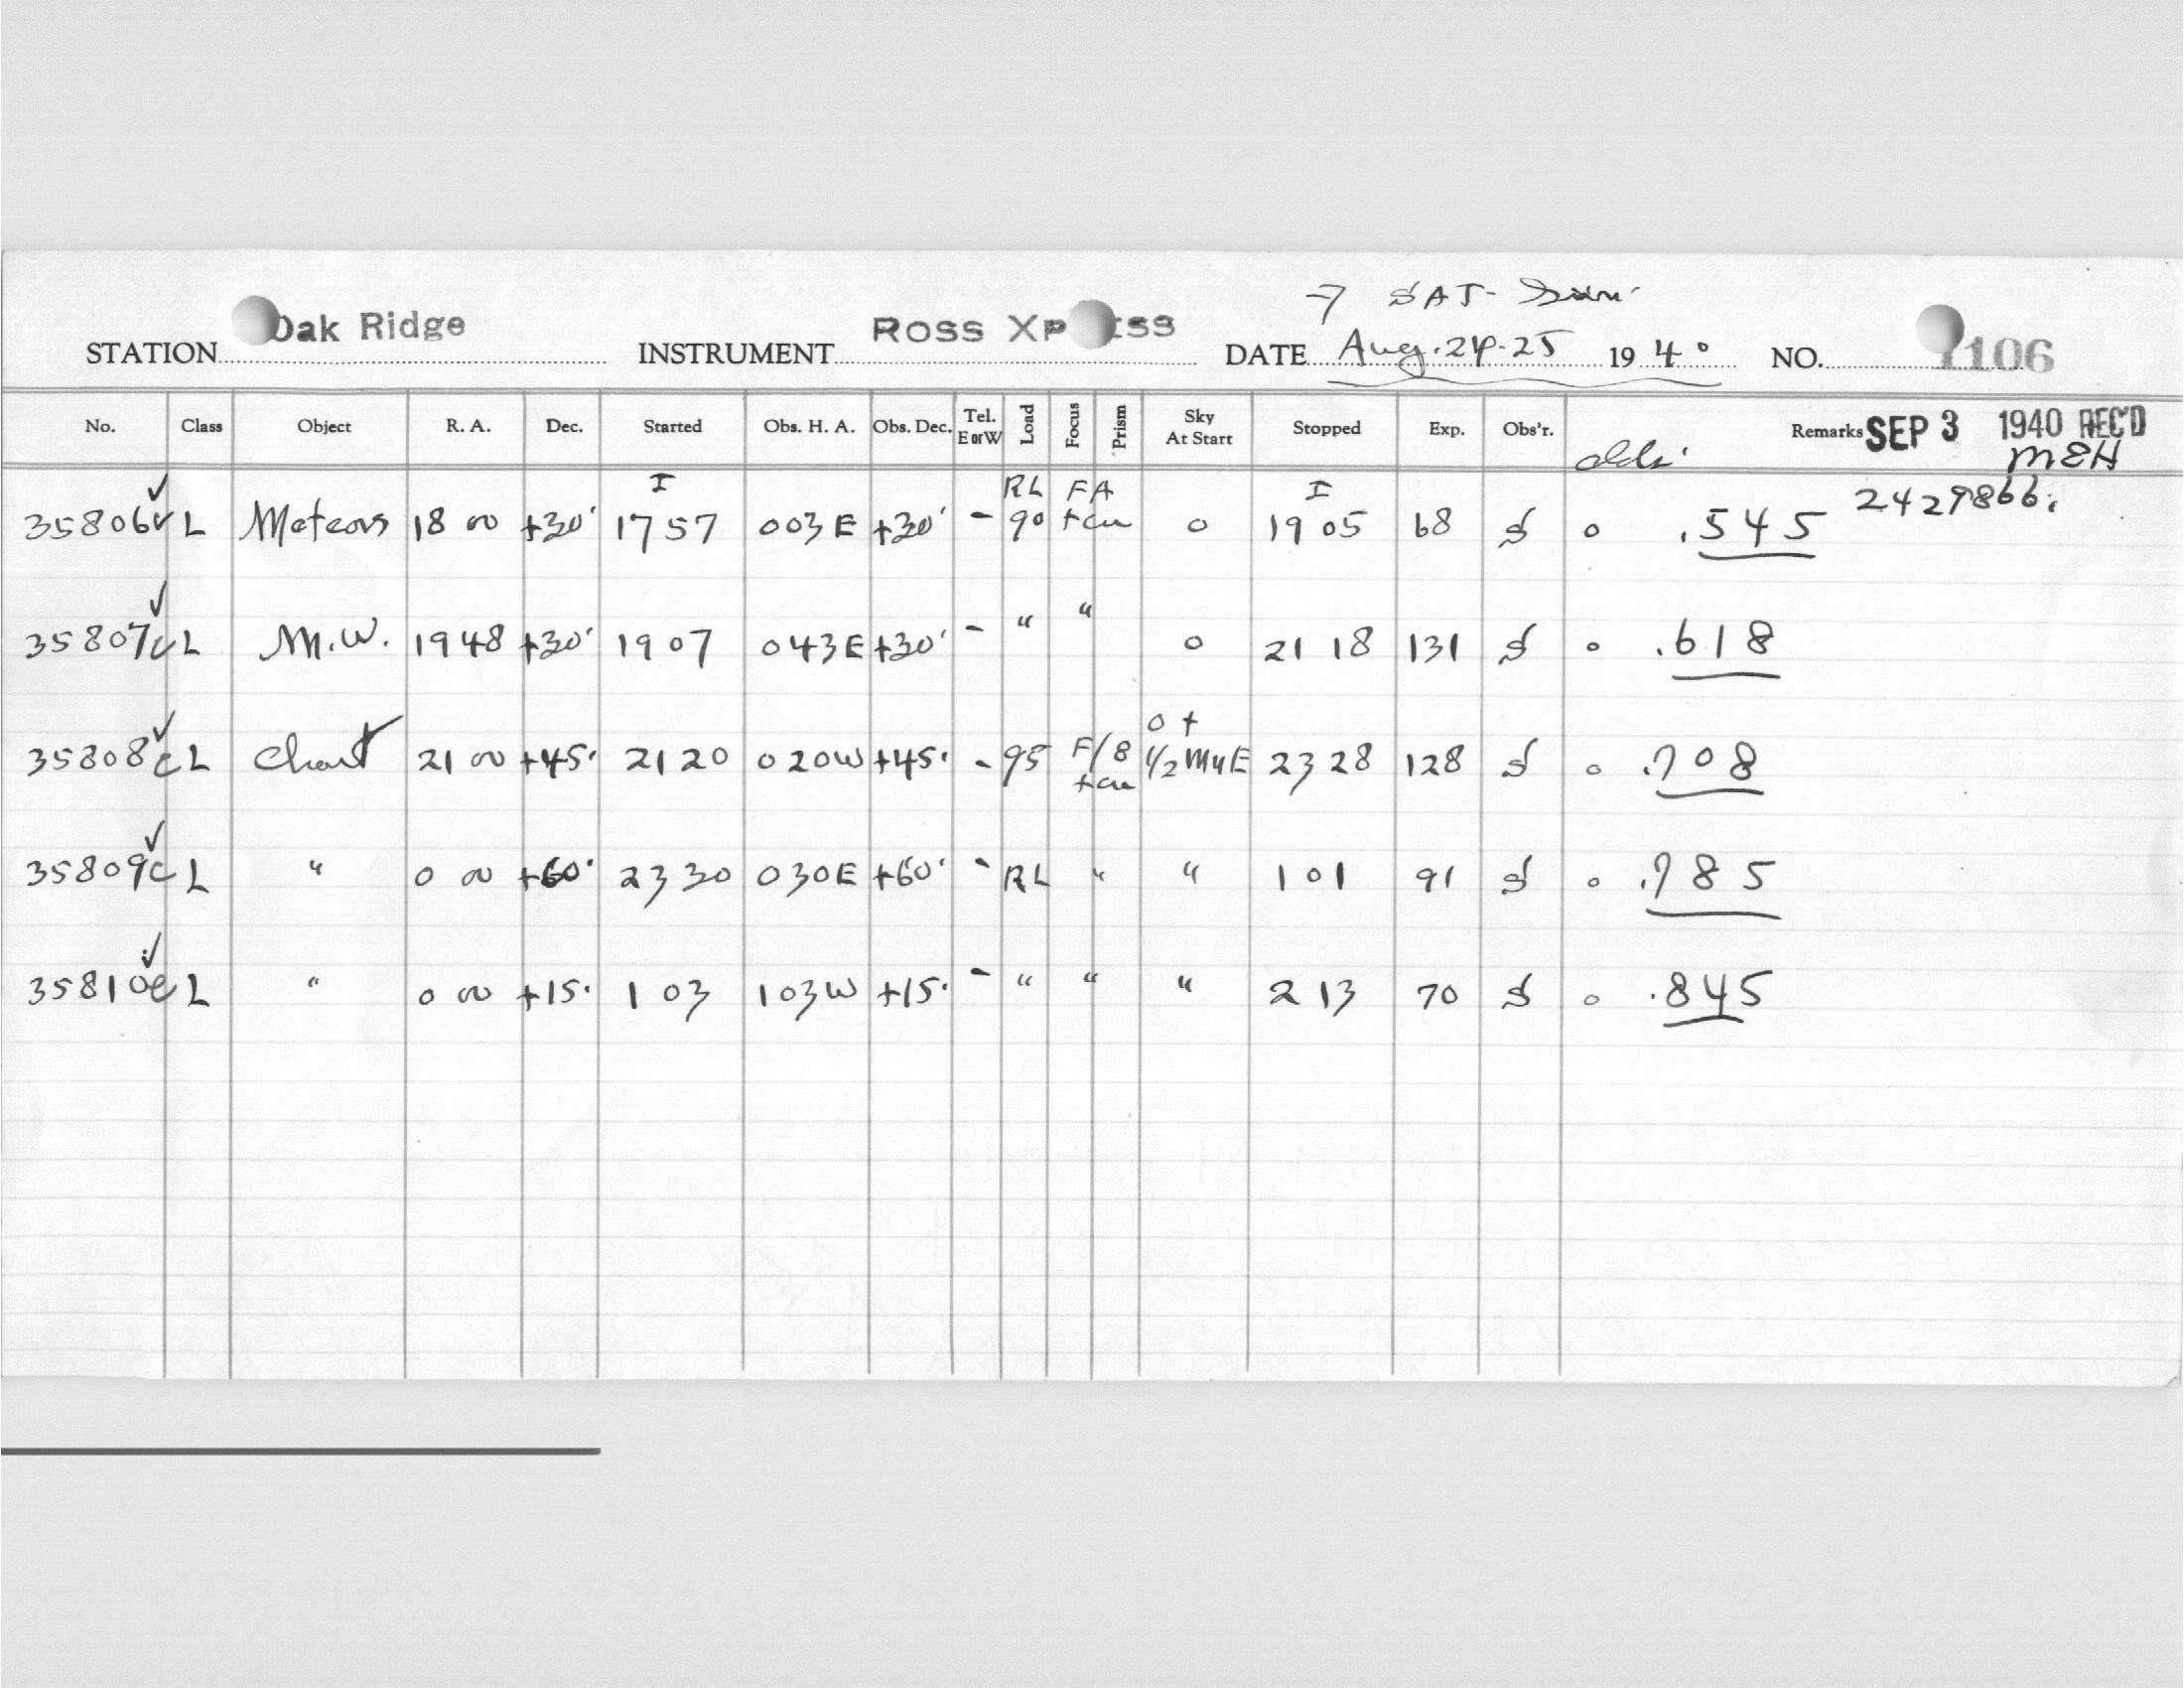 7 SAT-Sun.
STATION Oak Ridge INSTRUMENT ROSS XP ESS DATE Aug. 24-25 1940 NO. 1106
No. Class Object R. A. Dec. Started Obs. H. A. Obs. Dec. Tel. E or W Load Focus Prism Sky At Start Stopped Exp. Obs'r. Remarks SEP 3 1940 REC'D
MEH
I RL FA I 2429866.
35806 L Meteors 18 00 +30° 17 57 003E +30° - 90 0 19 05 68 S 0 .545
35807c L M.W. 1948 +30° 19 07 043E +30° - " " 0 21 18 131 S 0 .618
0 +
35808c L Chart 21 00 +45° 21 20 020W +45° - 95 F/8 1/2 M4E 23 28 128 S 0 .708
35809c L " 0 00 +60° 23 30 030E +60° - RL " " 1 01 91 S 0 .785
35810c L " 0 00 +15° 1 03 103W +15° - " " " 2 13 70 S 0 .845